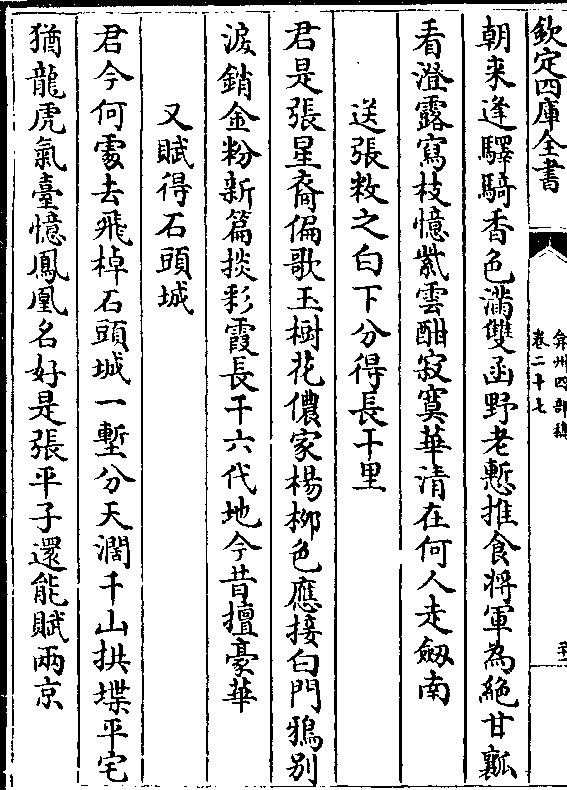 欽定四庫全書
弇州四部稿
卷二十七
朝来逢驛騎香色滿雙函野老慙推食將軍為絶甘瓤
看澄露寫枝憶紫雲酣寂寞華清在何人走劔南
送張敉之白下分得長干里
君是張星裔偏歌玉樹花儂家楊栁色應接白門鴉别
淚銷金粉新篇掞彩霞長干六代地今昔擅豪華
又賦得石頭城
君今何處去飛棹石頭城一塹分天濶千山拱堞平宅
猶龍虎氣臺憶鳳凰名好是張平子還能賦兩京